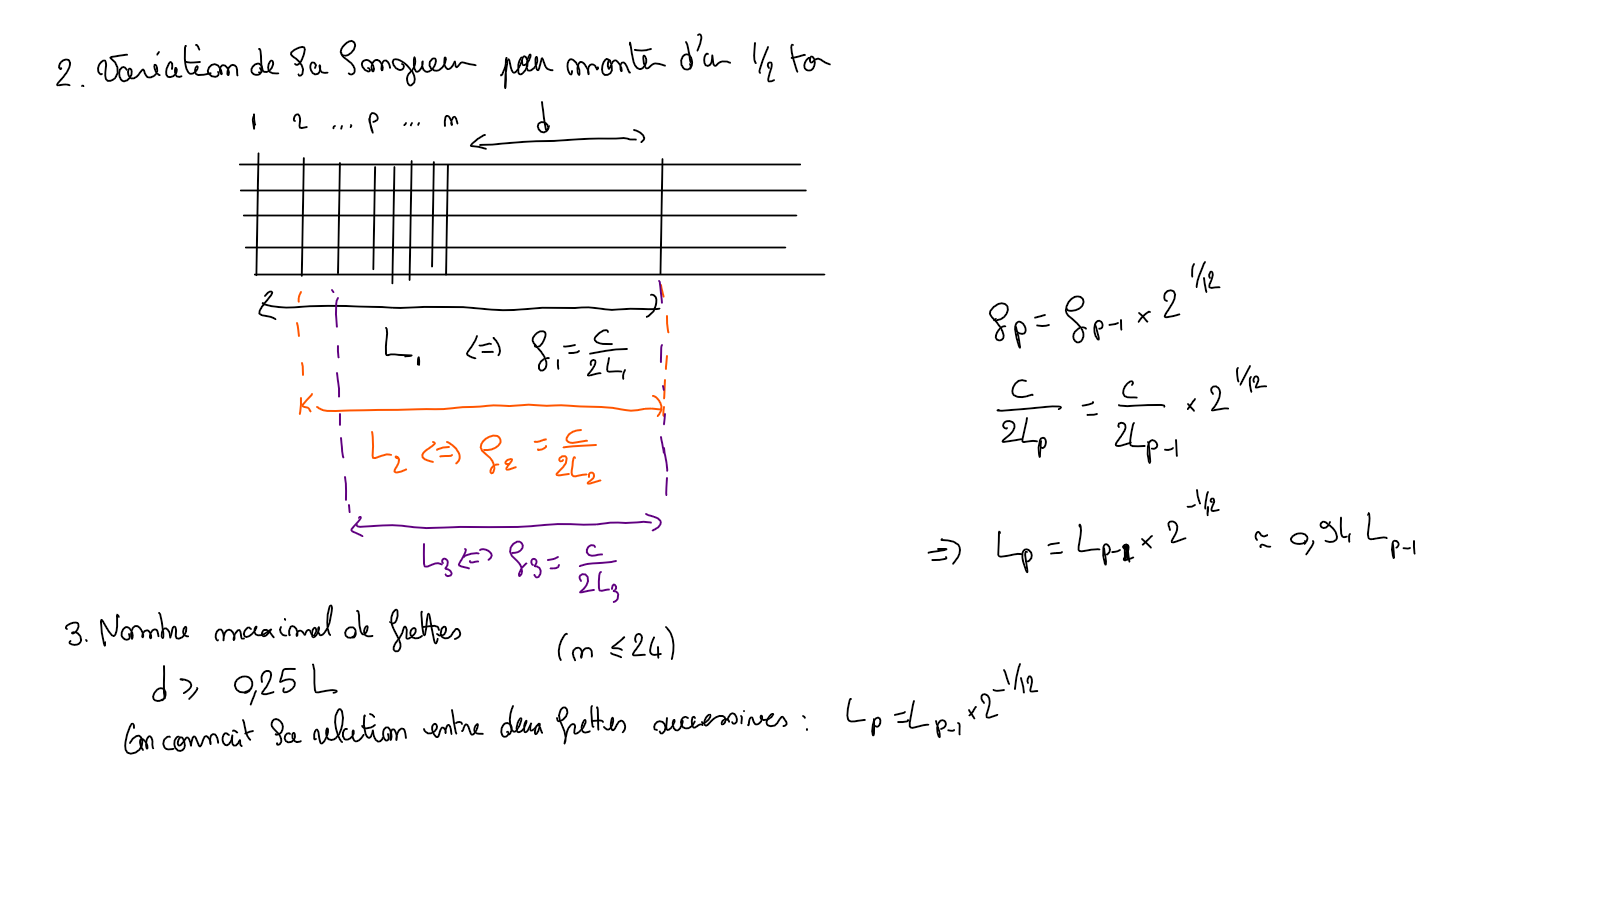 2. Variation de la longueur pour monter d'un 1/2 ton
1 2 ... p ... m
d
L₁ <=> f₁ = c/2L₁
L₂ <=> f₂ = c/2L₂
L₃ <=> f₃ = c/2L₃
fp = fp-1 × 2^1/12
c/2Lp = c/2Lp-1 × 2^1/12
=> Lp = Lp-1 × 2^-1/12 ≈ 0,94 Lp-1
3. Nombre maximal de frettes (m ≤ 24)
d ≥ 0,25 L
On connait la relation entre deux frettes successives : Lp = Lp-1 × 2^-1/12